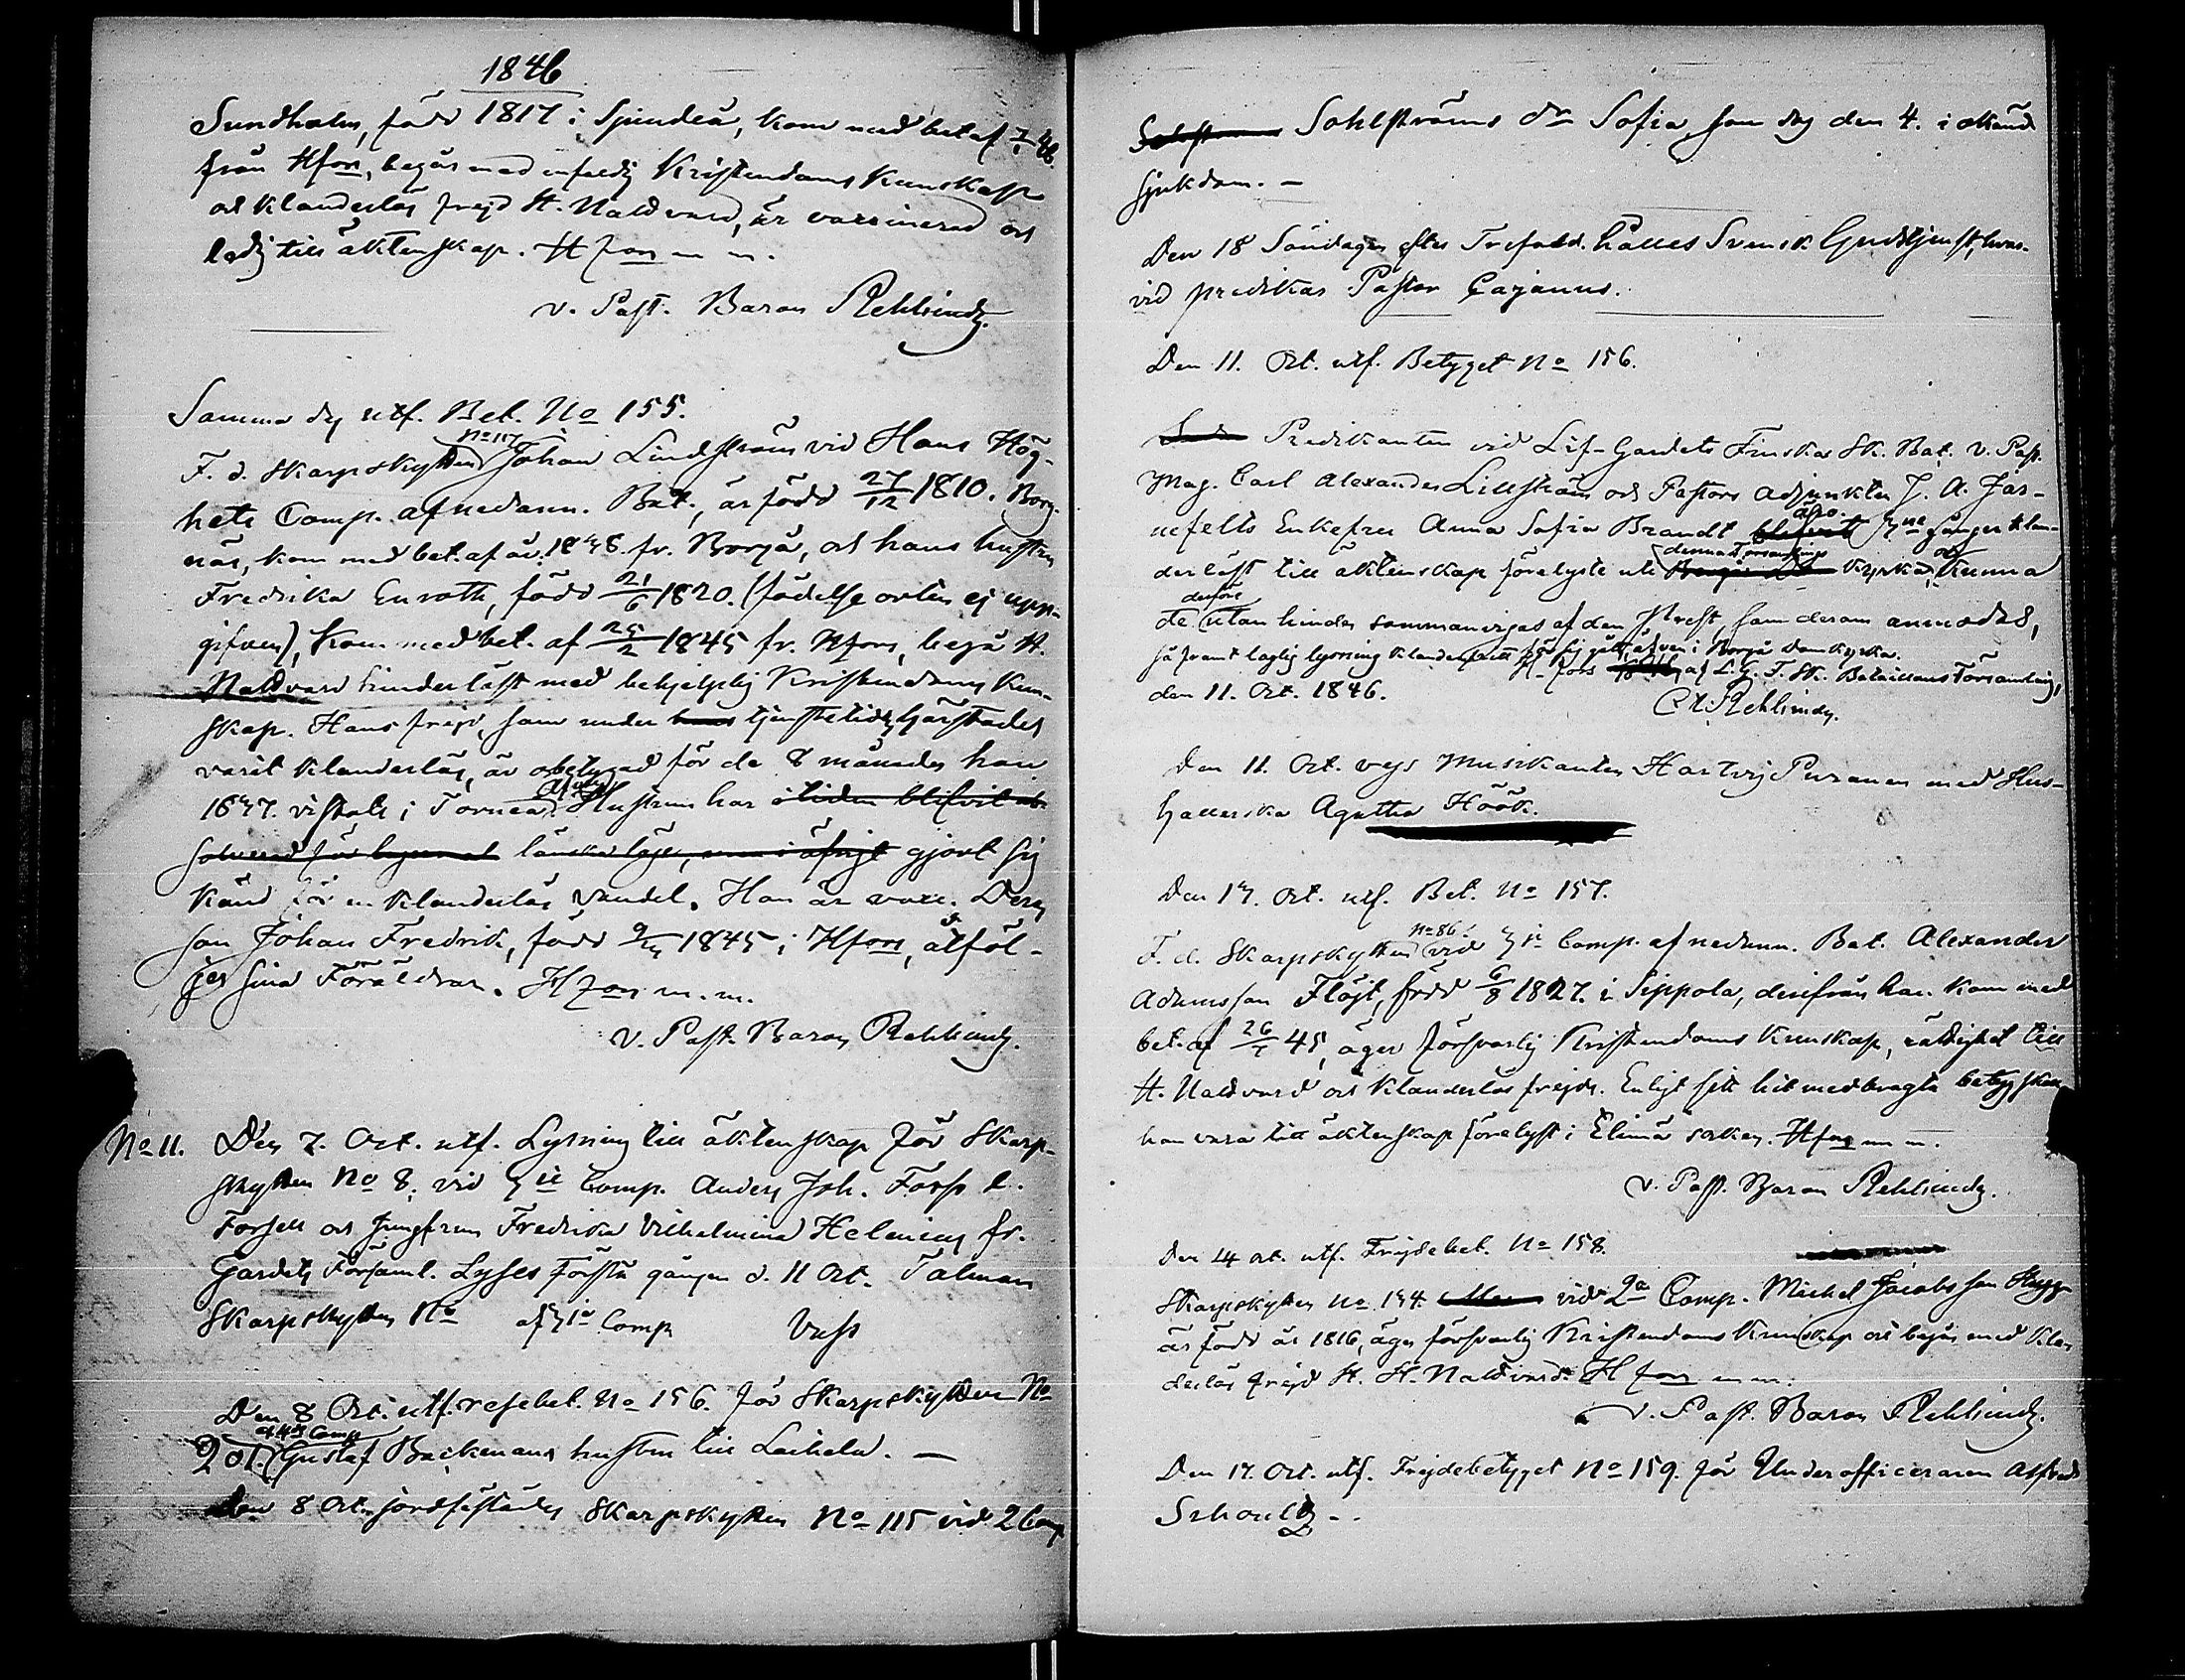 1846
Sundholm, född 1817 i Sjundeå, kom med bet af 7/7 46.
från Hfors, begår med enfaldig Kristendoms Kunskap
och klanderlös frejd H. Nattvard, är vaccinerad och
ledig till äktenskap. H fors m. m.
v. Past. Baron Rehbinder.
Samma dag utf. Bet. No 155.
F. d. Skarpskytten No 117 Johan Lindström vid Hans Hög-
hets Comp. af nedann. Bat., är född 27/12 1810. Borg-
näs, kom med bet. af år 1838 fr. Borgå, och hans hustru
Fredrika Enroth, född 21/6 1820. (födelse orten ej upp-
gifven), kom med bet. af 25/2 1845 fr. Hfors, begå H.
Nattvard hinderlöst med behjelplig Kristendoms Kun-
skap. Hans frejd, som under tjenstetiden härstädes
varit klanderlös, är obetygad för de 8 månader han
1837. vistats i Torneå. Hustrun har i tiden blifvit ab-
solverad för lönska läge, men i öfrigt gjort sig
känd för en klanderlös vandel. Han är vacc. Deras
son Johan Fredrik, född 9/4 1845 i Hfors, åtföl-
jer sina Föräldrar. H fors m. m.
v. Past. Baron Rehbinder.
No 11. Den 7. Oct. utf. Lysning till äktenskap för Skarp-
skytten No 8. vid 3ie Comp. Anders Joh. Forss l.
Forsell och Jungfrun Fredrika Vilhelmina Helenius fr.
Gardets Församl. Lyses första gången d. 11 Oct. Talman
Skarpskytten No af 3ie Comp
Den 8 Oct. utf. resebet. No 156. för Skarpskytten No
201. af 4de Comp Gustaf Backmans hustru till Laihela. —
Den 8 Oct. jordfästades Skarpskytten No 115 vid 2 Comp
Sohlströms dr Sofia som dog den 4. i okänd
sjukdom. —
Den 18 Söndagen efter Trefald. hålles Svensk Gudstjenst, hvar-
vid predikar Pastor Cajanus.
Den 11. Oct. utf. Betyget No 156.
Predikanten vid Lif-Gardets Finska Sk. Bat. v. Past.
Mag. Carl Alexander Lillström och Pastors adjunkten J. A. Jar-
nefelts Enkefru Anna Sofia Brandt äro 3ne gånger klan-
derlöst till äktenskap förelyste uti denna Församlings kyrka, och kunna
de derföre utan hinder sammanvigas af den Prest, som derom anmodas,
så framt laglig lysning klanderfritt för sig gått äfven i Borgå Domkyrka.
H-fors af L. G. F. Sk. Bataillons Församling,
den 11. Oct. 1846.
Rehbinder.
Den 11. Oct. vigs Musikanten Hartvig Puranen med Hus-
hållerska Agatha Höök.
Den 13. Oct. utf. Bet. No 157.
F. d. Skarpskytten No 86 vid 3ie Comp. af nedann. Bat. Alexander
Adamsson Flöjt, född 6/8 1827. i Sippola, derifrån han kom med
bet. af 26/7 45, äger försvarlig Kristendoms kunskap, rättighet till
H. Nattvard och klanderlös frejd. Enligt sitt hit medbragta betyg skall
han vara till äktenskap förelyst i Elimä socken. Hfors m m.
v. Past. Baron Rehbinder.
Den 14 oct. utf. Frejdebet. No 158.
Skarpskytten No 134. vid 2a Comp. Michel Jacobsson
är född år 1816, äger försvarlig Kristendoms kunskap och begår med klan-
derlös frejd H. H. Nattvard. H fors m m.
v. Past. Baron Rehbinder.
Den 17. Oct. utf. Frejdebetyget No 159. för Underofficeraren
Schoultz..